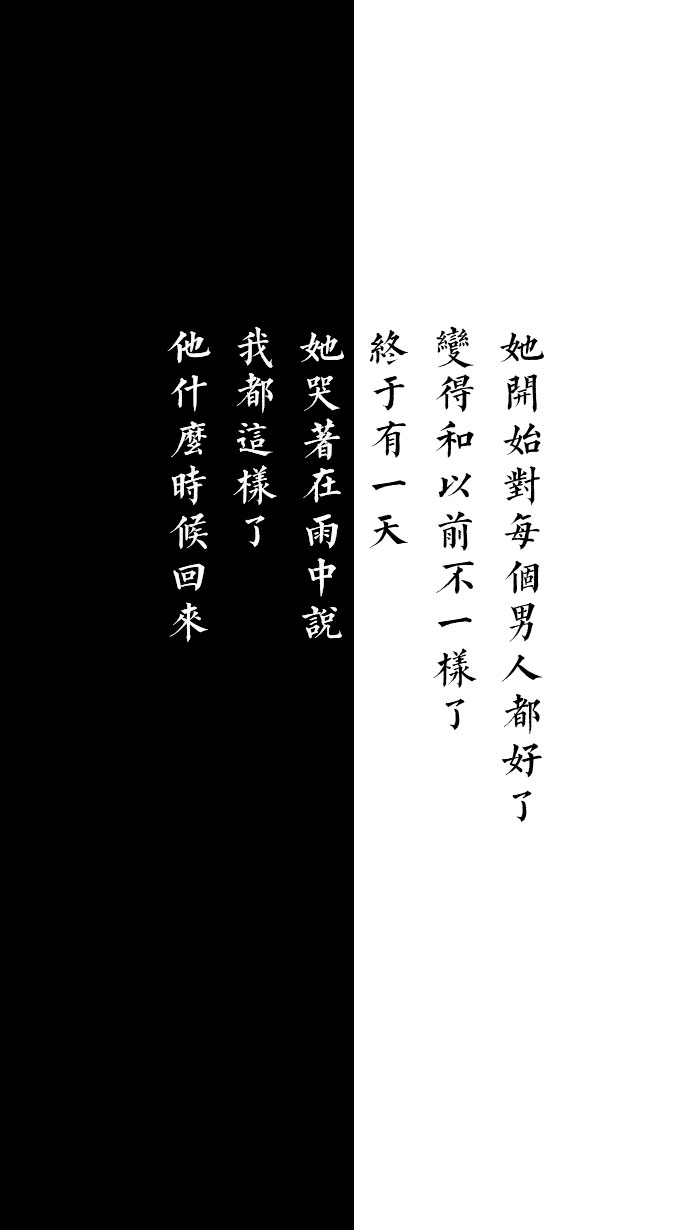 她開始對每個男人都好了
變得和以前不一樣了
終于有一天
她哭著在雨中說
我都這樣了
他什麼時候回來